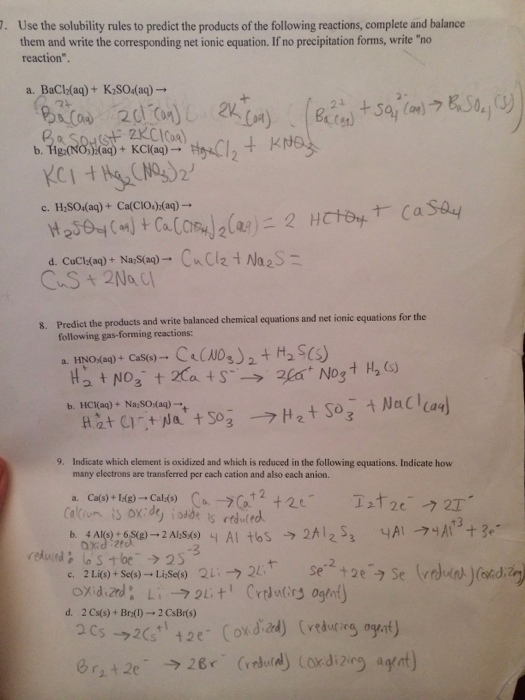 7. Use the solubility rules to predict the products of the following reactions, complete and balance
them and write the corresponding net ionic equation. If no precipitation forms, write "no
reaction".
a. BaCl₂(aq) + K₂SO₄(aq) →
Ba²⁺(aq) 2Cl⁻(aq) 2K⁺(aq) (Ba²⁺(aq) + SO₄²⁻(aq) → BaSO₄(s))
BaSO₄(s)+ 2KCl(aq)
b. Hg₂(NO₃)₂(aq) + KCl(aq) → Hg₂Cl₂ + KNO₃
KCl + Hg₂(NO₃)₂
c. H₂SO₄(aq) + Ca(ClO₄)₂(aq) →
H₂SO₄(aq) + Ca(ClO₄)₂(aq) = 2 HClO₄ + CaSO₄
d. CuCl₂(aq) + Na₂S(aq) → CuCl₂ + Na₂S =
CuS + 2NaCl
8. Predict the products and write balanced chemical equations and net ionic equations for the
following gas-forming reactions:
a. HNO₃(aq) + CaS(s) → Ca(NO₃)₂ + H₂S(s)
H₂⁺ + NO₃⁻ + 2Ca + S⁻ → 2Ca⁺ NO₃ + H₂(s)
b. HCl(aq) + Na₂SO₃(aq) →
H₂⁺ + Cl⁻ + Na⁺ + SO₃⁻ → H₂ + SO₃⁻ + NaCl(aq)
9. Indicate which element is oxidized and which is reduced in the following equations. Indicate how
many electrons are transferred per each cation and also each anion.
a. Ca(s) + I₂(g) → CaI₂(s) Ca → Ca⁺² + 2e⁻ I₂ + 2e⁻ → 2I⁻
Calcium is oxide, iodide is reduced
b. 4 Al(s) + 6 S(g) → 2 Al₂S₃(s) 4 Al + 6S → 2Al₂S₃ 4Al → 4Al⁺³ + 3e⁻
oxidized
reduced: 6S + 6e⁻ → 2S⁻³
c. 2 Li(s) + Se(s) → Li₂Se(s) 2Li → 2Li⁺ Se⁻² + 2e⁻ → Se (reduced) (oxidizing
oxidized: Li → 2Li⁺¹ (reducing agent)
d. 2 Cs(s) + Br₂(l) → 2 CsBr(s)
2Cs → 2Cs⁺¹ + 2e⁻ (oxidized) (reducing agent)
Br₂ + 2e⁻ → 2Br⁻ (reduced) (oxidizing agent)